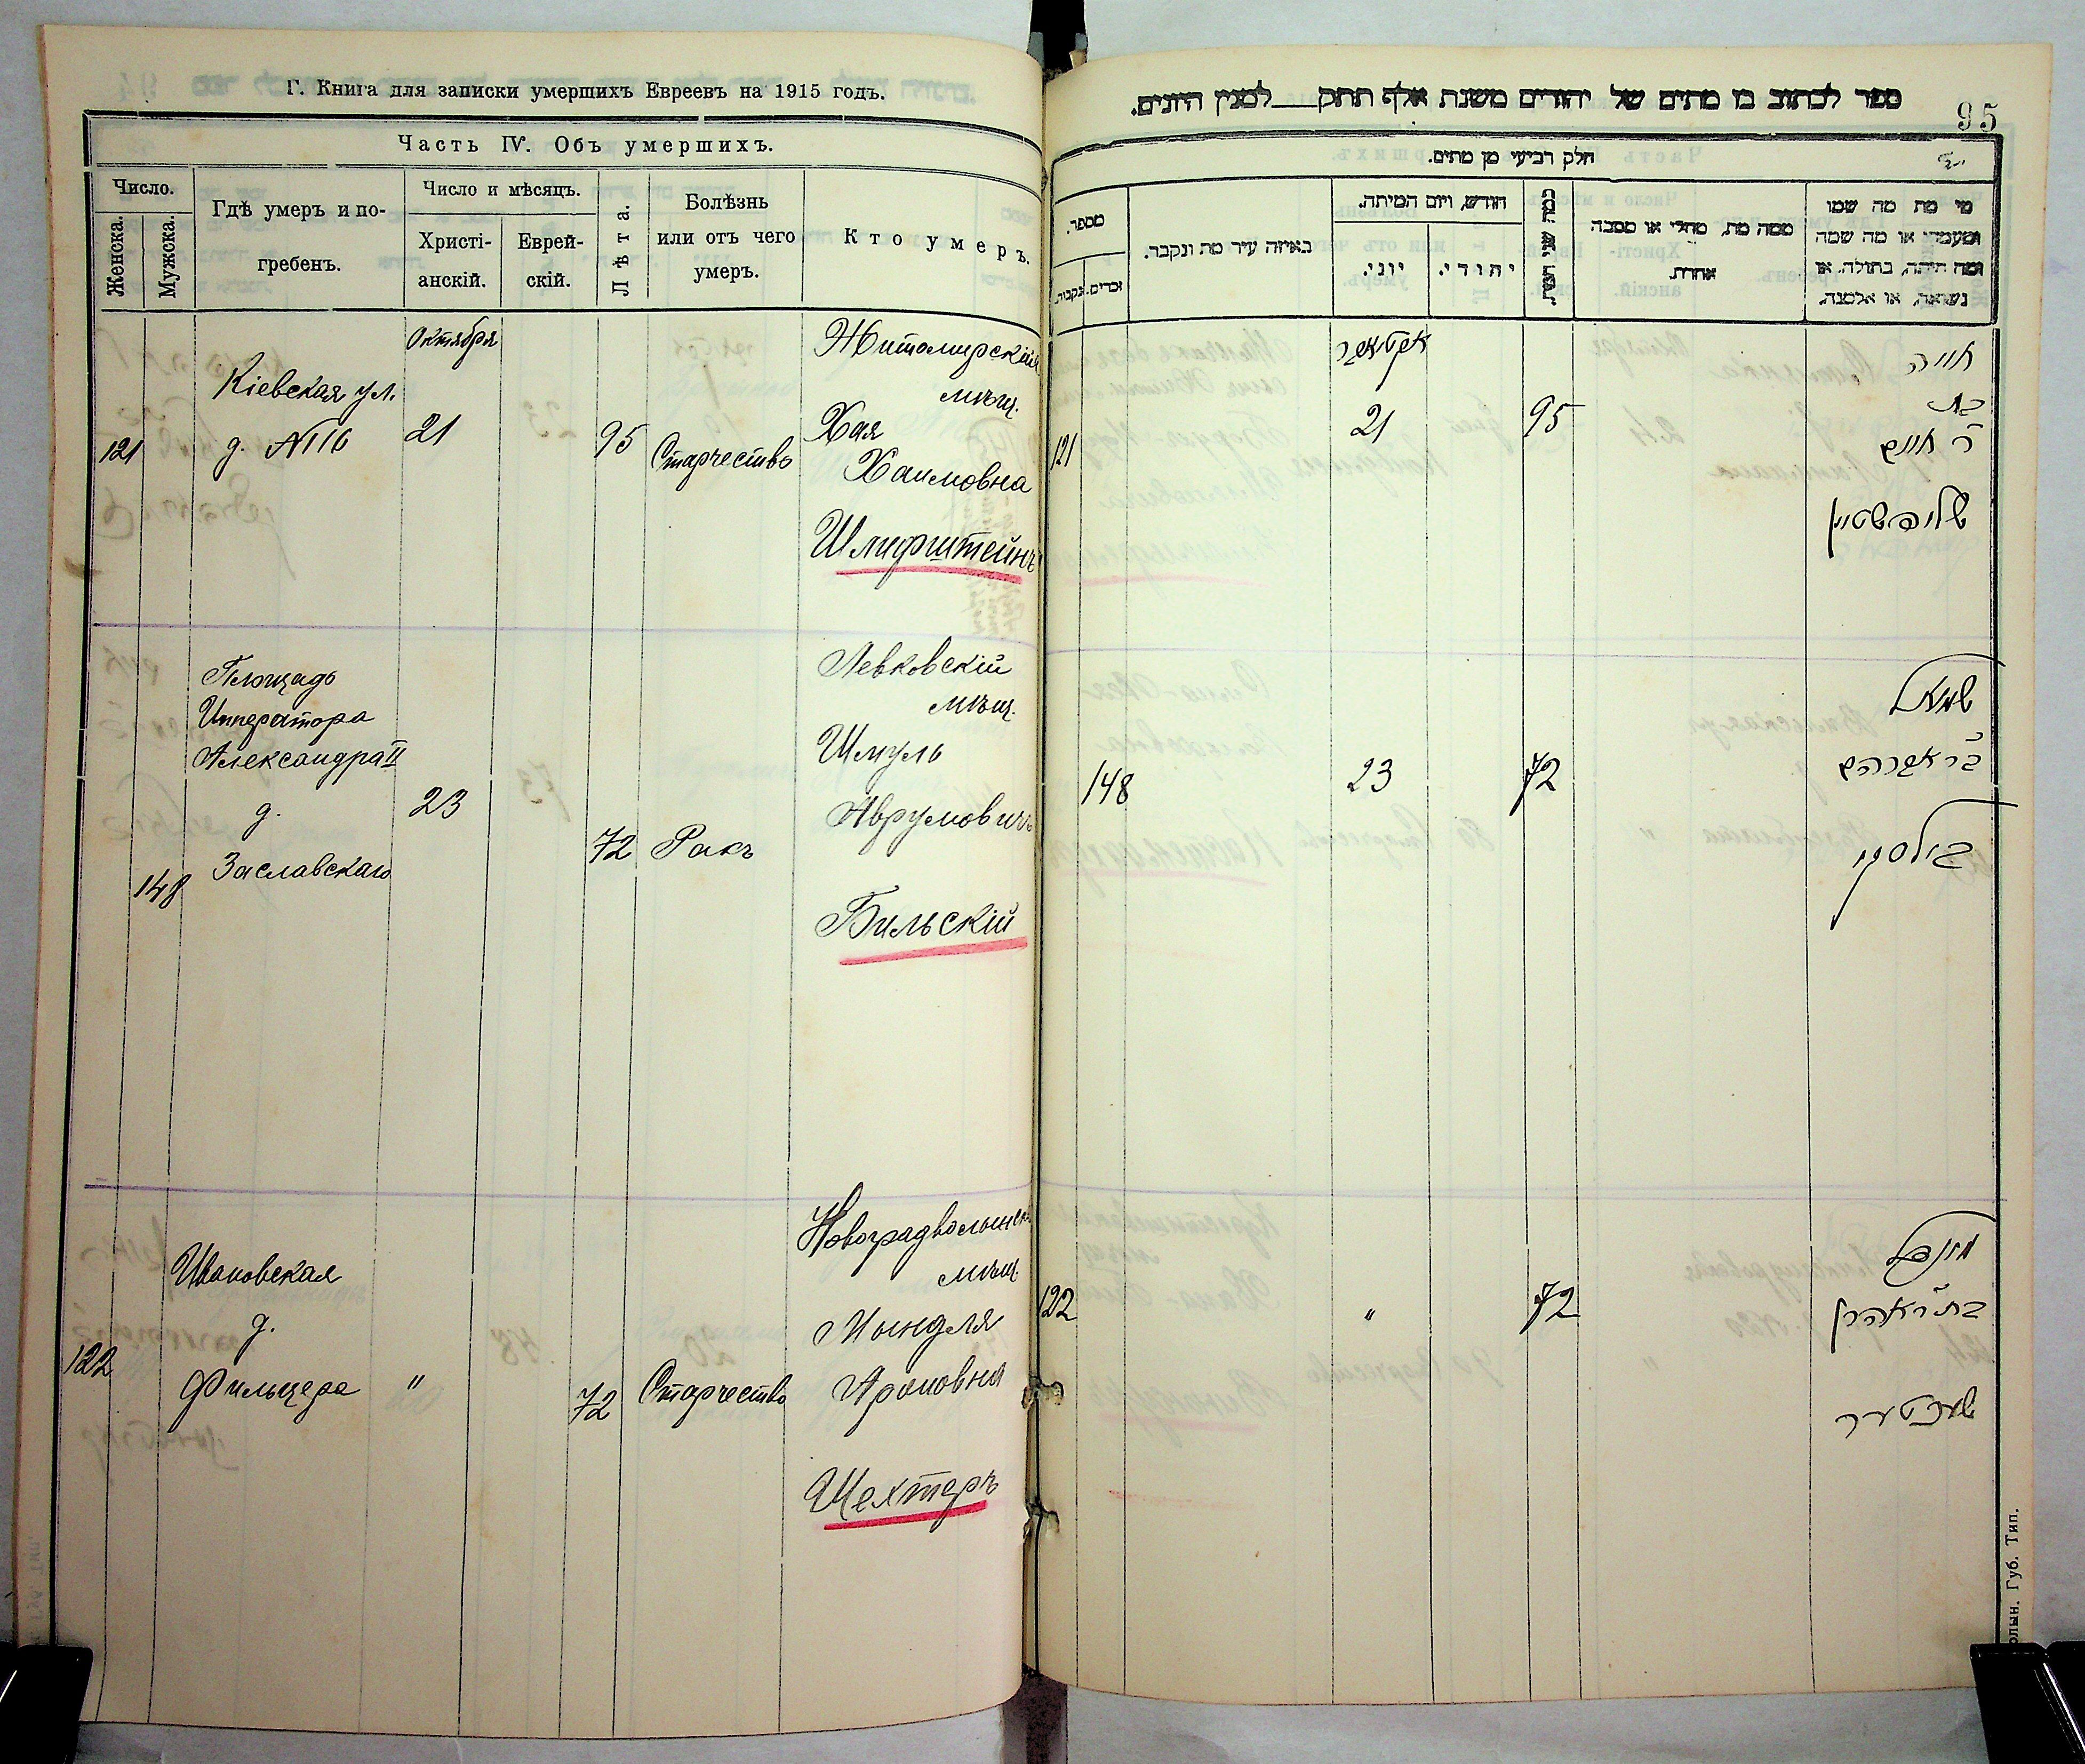 Г. Книга для записки умершихъ Евреевъ на 1915 годъ.
Часть IV. Объ умершихъ.
Число.
Женска.
Мужска.
Гдѣ умеръ и по-
гребенъ.
Число и мѣсяцъ.
Христі-
анскій.
Еврей-
скій.
Лѣта.
Болѣзнь
или отъ чего
умеръ.
Кто умеръ.
Октября
121
Кіевская ул.
д. №116
21
95
Старчество
Житомирскій
мѣщ.
Хая
Хаимовна
Шлифштейнъ
148
Площадь
Императора
Александра II
д.
Заславскаго
23
72
Ракъ
Левковскій
мѣщ.
Шмуль
Аврумовичъ
Бильскій
122
Ивановская
д.
Фильцера
"
72
Старчество
мѣщ.
Мындля
Ароновна
Шехтеръ
ספר לכתוב בו מתים של יהודים משנת אלף תתק למנין היונים.
95
חלק רביעי מן מתים.
מספר.
נקבות.
זכרים.
באיזה עיר מת ונקבר.
חודש, ויום המיתה.
יוני.
יהודי.
כמה שני חייו.
ממה מת, מחלי או מסבה
אחרת.
מי מת מה שמו
ומעמדו או מה שמה
ומה היתה, בתולה, או
נשואה, או אלמנה.
אקטאבר
121
21
95
חייה
בת
ר' חיים
שליפשטיין
148
23
72
שמואל
ב"ר אברהם
בילסקי
122
"
72
מינדל
בת ר' אהרן
שעכטער
олын. Губ. Тип.